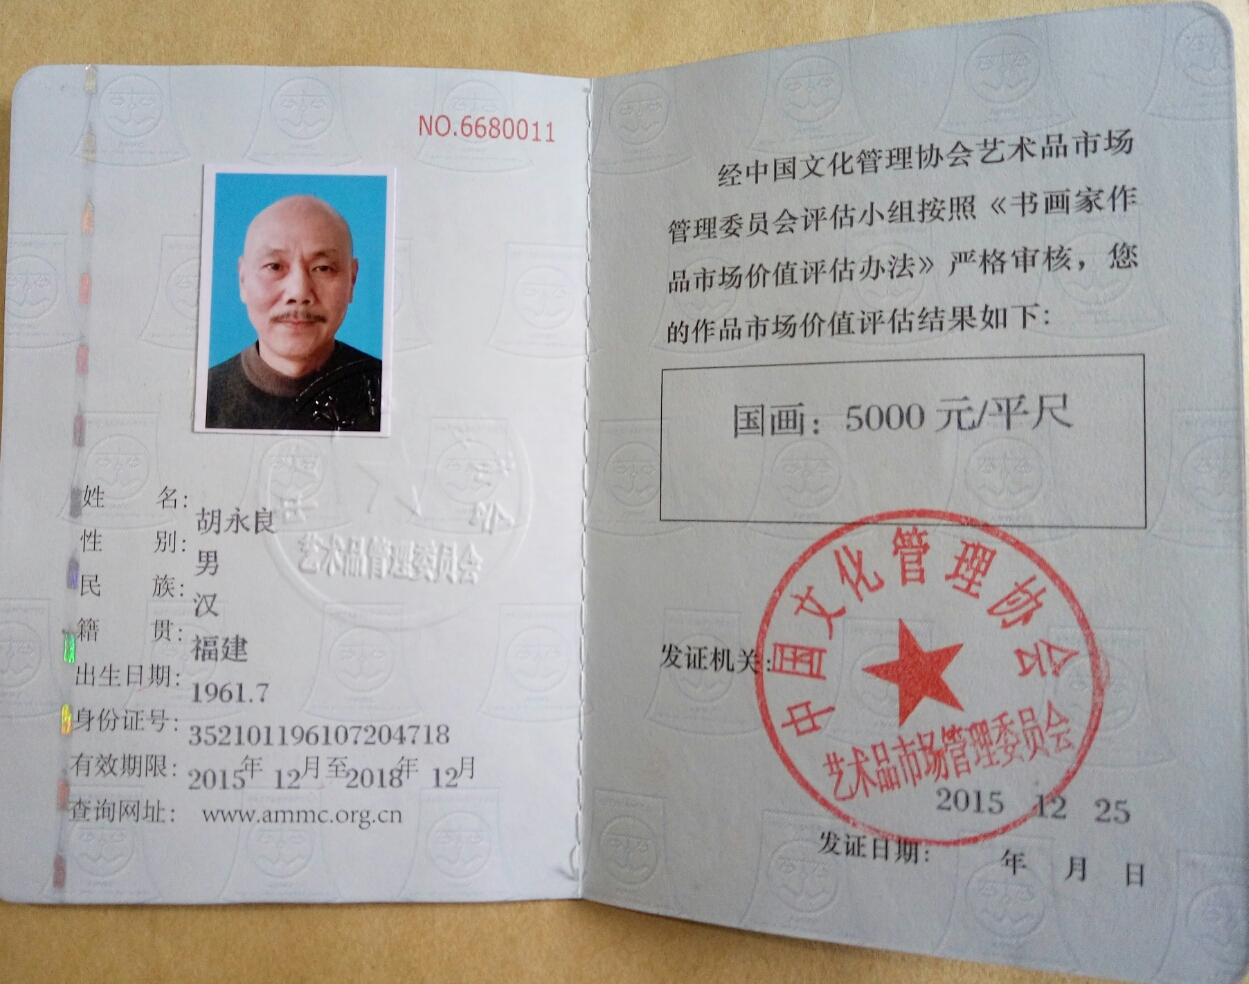 NO.6680011
姓 名：胡永良
性 别：男
民 族：汉
籍 贯：福建
出生日期：1961.7
身份证号：352101196107204718
有效期限：2015年 12月至2018年 12月
查询网址：www.ammc.org.cn
艺术品管理委员会
经中国文化管理协会艺术品市场
管理委员会评估小组按照《书画家作
品市场价值评估办法》严格审核，您
的作品市场价值评估结果如下：
国画：5000 元/平尺
发证机关：
中国文化管理协会
艺术品市场管理委员会
2015 12 25
发证日期： 年 月 日